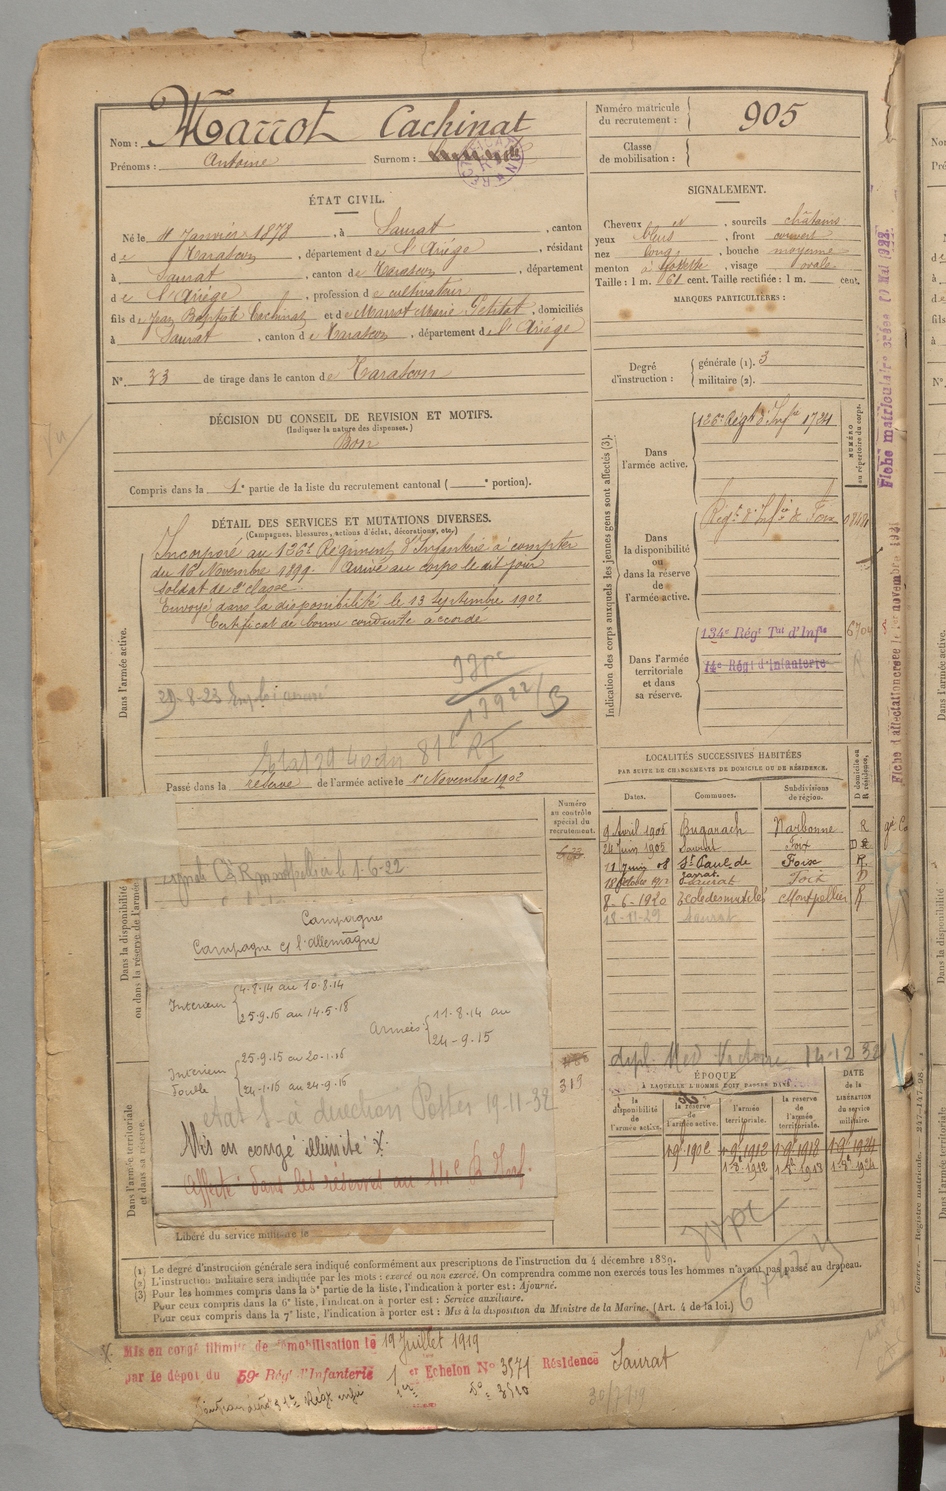 Nom : Marrot Cachinat
Prénoms : Antoine Surnom :
Numéro matricule du recrutement : 905
Classe de mobilisation :
ÉTAT CIVIL.
Né le 4 Janvier 1878, à Saurat, canton
de Tarascon, département de l'Ariège, résidant
à Saurat, canton de Tarascon, département
de l'Ariège, profession de cultivateur
fils de Jean Baptiste Cachinat et de Marrot Marie Petitat, domiciliés
à Saurat, canton de Tarascon, département de l'Ariège
N° 33 de tirage dans le canton de Tarascon
SIGNALEMENT.
Cheveux et, sourcils châtains
yeux bleus, front couvert
nez long, bouche moyenne
menton à fossette, visage ovale
Taille : 1 m. 61 cent. Taille rectifiée : 1 m. cent.
MARQUES PARTICULIÈRES :
Degré d'instruction : générale (1). 3
militaire (2).
DÉCISION DU CONSEIL DE REVISION ET MOTIFS.
(Indiquer la nature des dispenses.)
Bon
Compris dans la 1e partie de la liste du recrutement cantonal ( e portion).
DÉTAIL DES SERVICES ET MUTATIONS DIVERSES.
(Campagnes, blessures, actions d'éclat, décorations, etc.)
Dans l'armée active.
Incorporé au 136e Régiment d'Infanterie à compter
du 16 Novembre 1899. Arrivé au corps le dit jour
soldat de 2e classe
Envoyé dans la disponibilité le 13 Septembre 1902
Certificat de bonne conduite accordé
29-8-23
1922/3
81e RI
Passé dans la réserve de l'armée active le 1er Novembre 1902
Indication des corps auxquels les jeunes gens sont affectés (3).
NUMÉRO au répertoire du corps.
Dans l'armée active.
136e Régt d'Infie 1734
Dans la disponibilité ou dans la réserve de l'armée active.
Régt d'Infie de Foix
Dans l'armée territoriale et dans sa réserve.
134e Régt Tal d'Infie
14e Régt d'Infanterie
Fiche matriculaire créée
Fiche d'affectation créée le 1er novembre
LOCALITÉS SUCCESSIVES HABITÉES
PAR SUITE DE CHANGEMENTS DE DOMICILE OU DE RÉSIDENCE.
Dates. Communes. Subdivisions de région. D domicile ou R résidence.
9 Avril 1905 Bugarach Narbonne R
24 Juin 1905 Saurat Foix D R
11 Juin 08 St Paul de Jarrat Foix R
18 Octobre 1912 Saurat Foix D
8-6-1920 Ecole des mutilés Montpellier R
18-11-29 Saurat
Numéro au contrôle spécial du recrutement.
319
Dans la disponibilité ou dans la réserve de l'armée active.
Montpellier le 1-6-22
Campagnes
Campagne c/ l'Allemagne
Intérieur 4-8-14 au 10-8-14
25-9-16 au 14-5-18
Armées 11-8-14 au
24-9-15
Intérieur 25-9-15 au 20-1-16
24-1-16 au 24-9-16
état S. à direction Postes 19-11-32
Mis en congé illimité
Affecté dans les réserves au 14e R. d'Inf.
Dans l'armée territoriale et dans sa réserve.
Libéré du service militaire le
dipl. Med Victoire 14-12 32
ÉPOQUE
À LAQUELLE L'HOMME DOIT PASSER DANS
DATE de la LIBÉRATION du service militaire.
la disponibilité de l'armée active. la réserve de l'armée active. l'armée territoriale. la réserve de l'armée territoriale.
(1) Le degré d'instruction générale sera indiqué conformément aux prescriptions de l'instruction du 4 décembre 1889.
(2) L'instruction militaire sera indiquée par les mots : exercé ou non exercé. On comprendra comme non exercés tous les hommes n'ayant pas passé au drapeau.
(3) Pour les hommes compris dans la 5e partie de la liste, l'indication à porter est : Ajourné.
Pour ceux compris dans la 6e liste, l'indication à porter est : Service auxiliaire.
Pour ceux compris dans la 7e liste, l'indication à porter est : Mis à la disposition du Ministre de la Marine. (Art. 4 de la loi.)
Guerre. — Registre matricule. 247-147-98.
Mis en congé illimité de démobilisation le 19 Juillet 1919
par le dépôt du 59e Régt d'Infanterie 1er Echelon N° 3571 Résidence Saurat
30/7/19